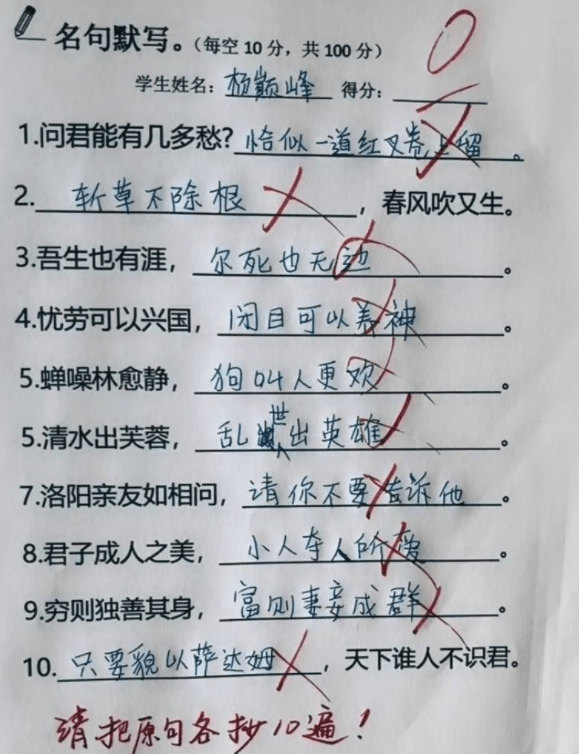 名句默写。(每空10分，共100分)
0
学生姓名：杨巅峰 得分：
1.问君能有几多愁？恰似一道红叉卷上留。
2.斩草不除根，春风吹又生。
3.吾生也有涯，尔死也无边。
4.忧劳可以兴国，闭目可以养神。
5.蝉噪林愈静，狗叫人更欢。
5.清水出芙蓉，乱世出英雄。
7.洛阳亲友如相问，请你不要告诉他。
8.君子成人之美，小人夺人所爱。
9.穷则独善其身，富则妻妾成群。
10.只要貌以萨达姆，天下谁人不识君。
请把原句各抄10遍！